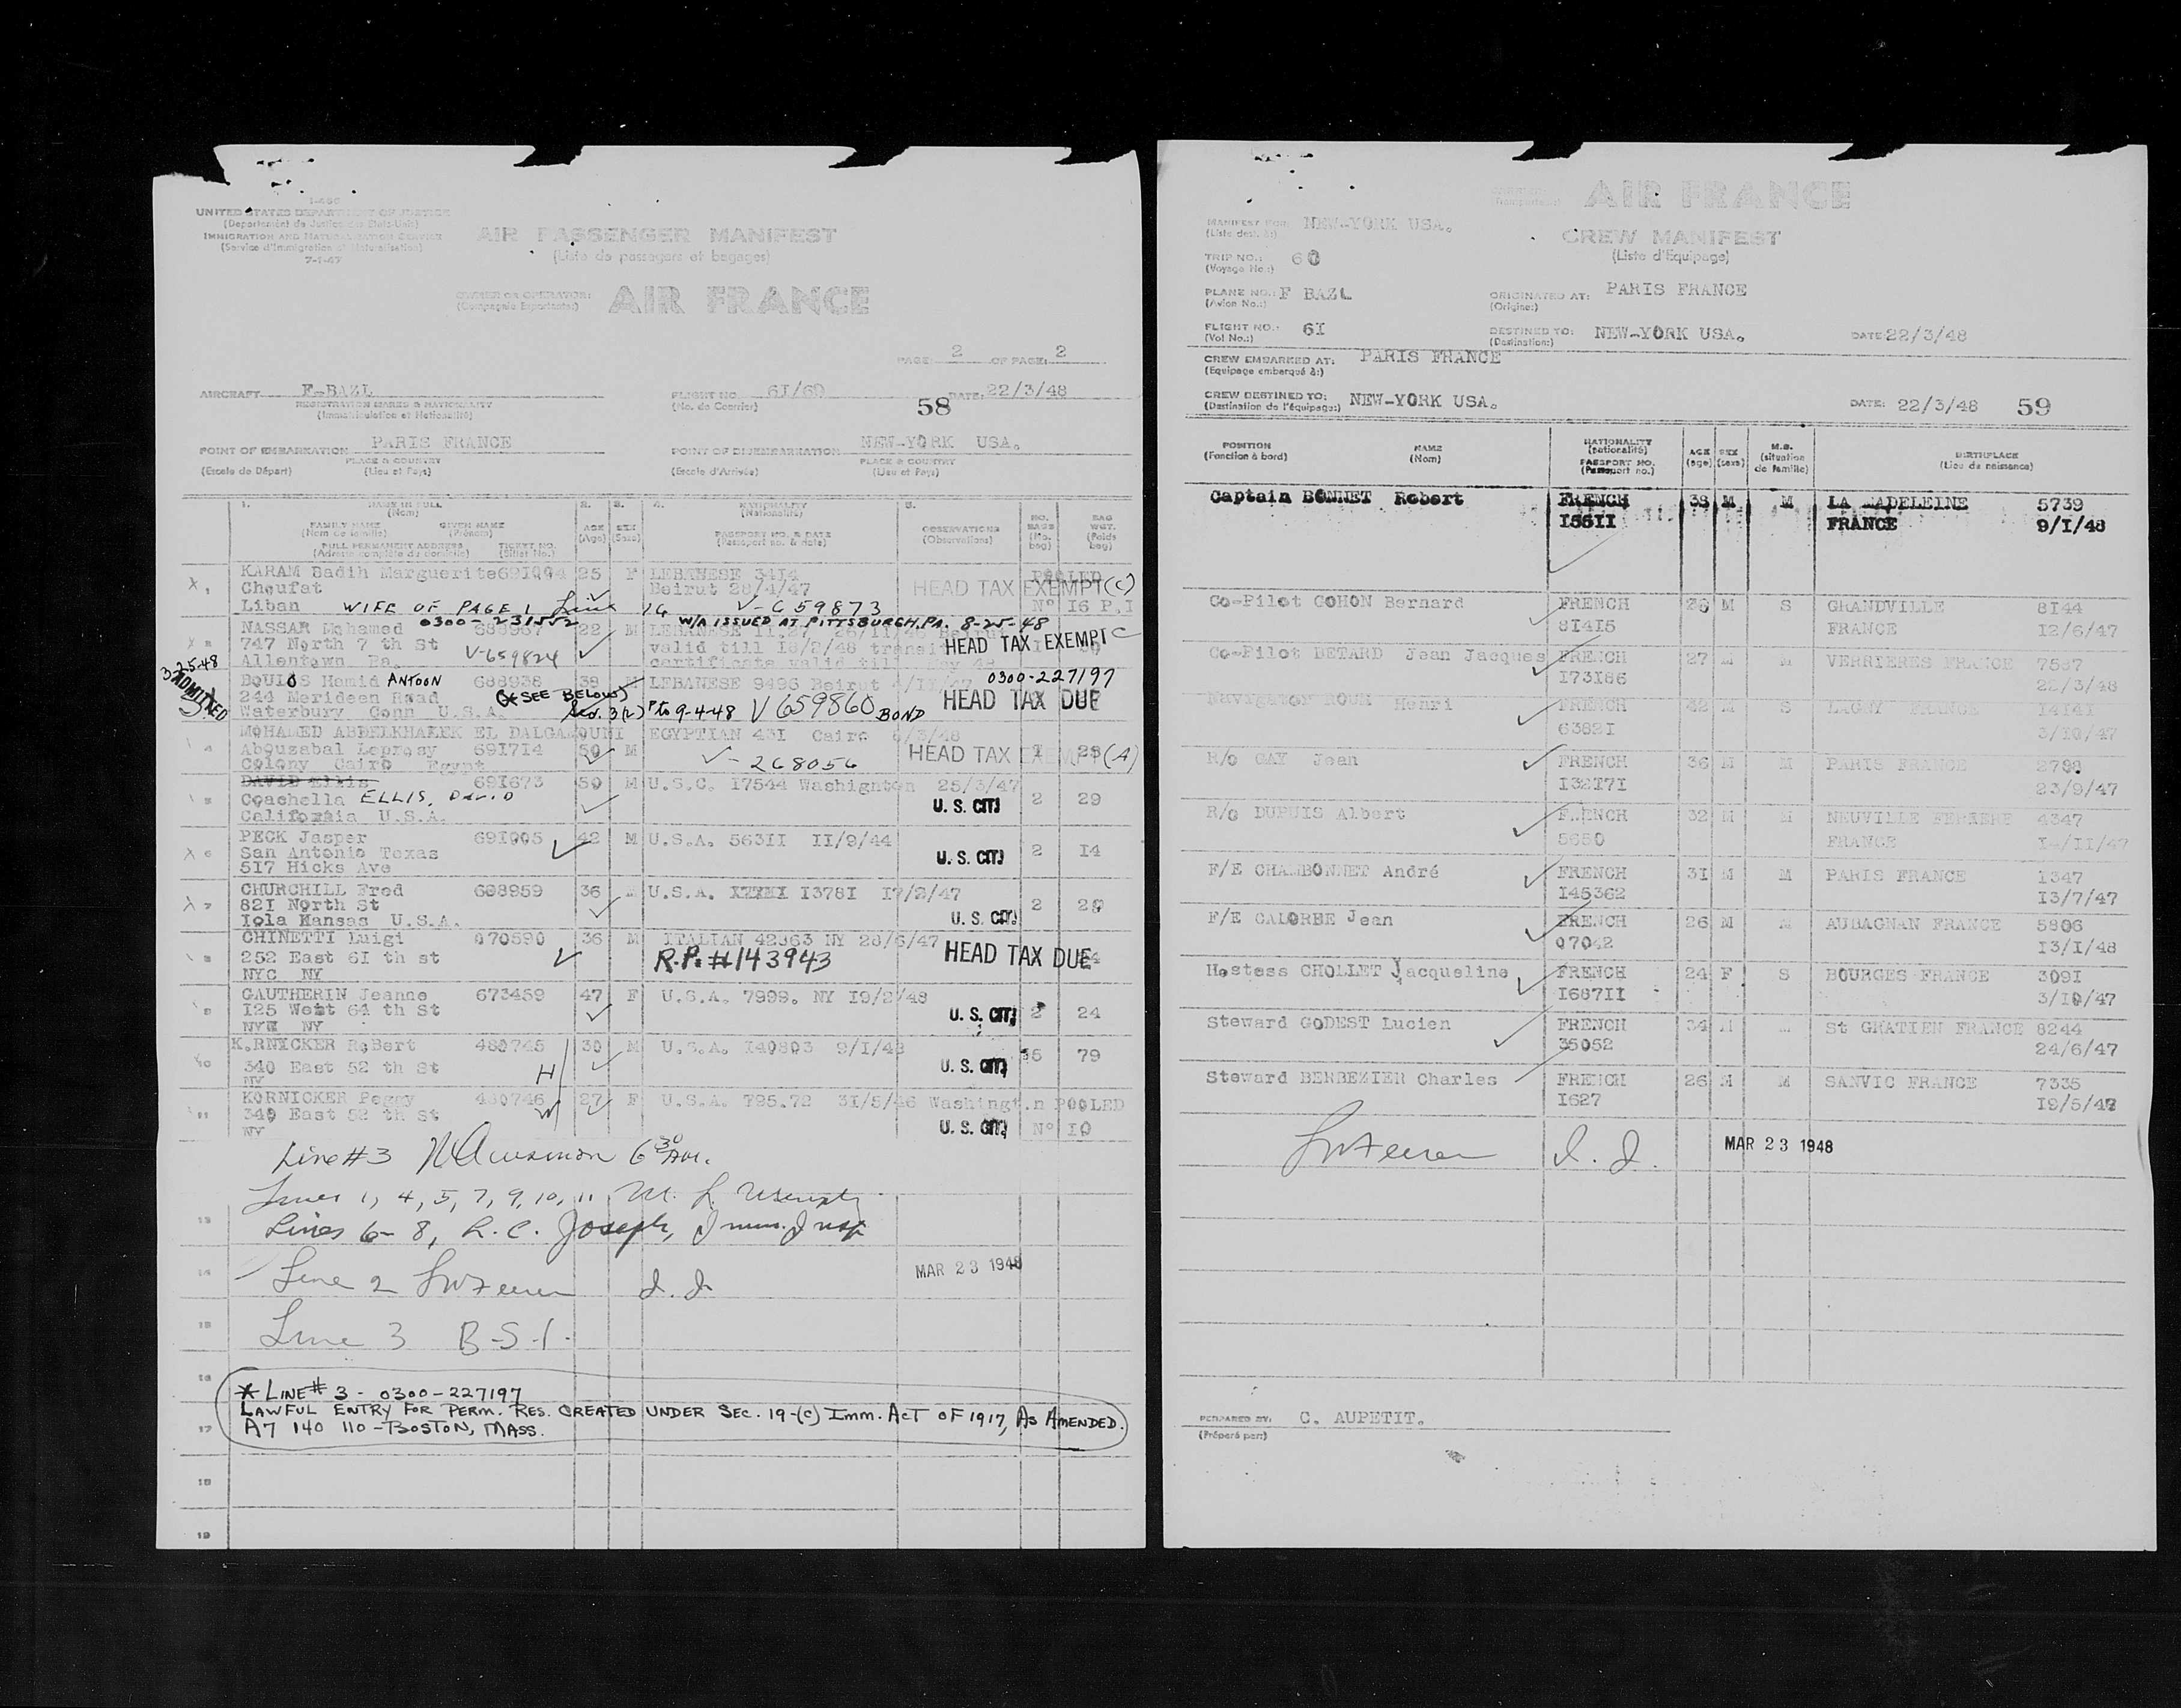 I-466
UNITED STATES DEPARTMENT OF JUSTICE
(Departement de Justice des Etats-Unis)
IMMIGRATION AND NATURALISATION SERVICE
(Service d'Immigration et Naturalisation)
7-1-47
AIR PASSENGER MANIFEST
(Liste de passagers et bagages)
OWNER OR OPERATOR: AIR FRANCE
(Compagnie Exportante:)
PAGE: 2 OF PAGE: 2
AIRCRAFT F-BAZL FLIGHT NO. 6I/60 DATE: 22/3/48
REGISTRATION MARKS & NATIONALITY (No. de Courrier) 58
(Immatriculation et Nationalité)
POINT OF EMBARKATION PARIS FRANCE POINT OF DISEMBARKATION NEW-YORK USA.
PLACE & COUNTRY PLACE & COUNTRY
(Escale de Départ) (Lieu et Pays) (Escale d'Arrivée) (Lieu et Pays)
1. NAME IN FULL 2. 3. 4. NATIONALITY 5.
(Nom) (Nationalité)
FAMILY NAME GIVEN NAME AGE SEX OBSERVATIONS NO. BAGS BAG WGT.
(Nom de famille) (Prénom) (Age) (Sexe) (Observations) (No. bag) (Poids bag)
FULL PERMANENT ADDRESS TICKET NO. PASSPORT NO. & DATE
(Adresse complète du domicile) (Billet No.) (Passeport no. & date)
X 1 KARAM Badih Marguerite 691004 25 F LEBANESE 34I4 POOLED
Choufat Beirut 28/4/47 HEAD TAX EXEMPT (C)
Liban WIFE OF PAGE 1 Line 16 V-659873 N° I6 P.I
0300-231552 W/A ISSUED AT PITTSBURGH, PA. 8-25-48
NASSAR Mohamed 688937 22 M LEBANESE
747 North 7 th St V-659824 valid till I8/2/48 HEAD TAX EXEMPT C
Allentown Pa. certificate valid till May 48
3-25-48 ADMITTED
BOUIOS Hamid ANTOON 688938 38 LEBANESE 9496 Beirut 0300-227197
244 Merideen Road (* SEE BELOW) HEAD TAX DUE
Waterbury Conn U.S.A. 3(2) P to 9-4-48 V659860 BOND
MOHAMED ABDELKHALEK EL DALGAMOUNI EGYPTIAN 43I Cairo 6/3/48
4 Abouzabal Leprosy 69I7I4 50 M HEAD TAX EXEMPT (A)
Colony Cairo Egypt V-268056
DAVID Ellis 69I673 50 M U.S.C. I7544 Washignton 25/3/47
Coachella ELLIS, DAVID U. S. CIT. 2 29
California U.S.A.
X 6 PECK Jasper 69I005 42 M U.S.A. 563II II/9/44
San Antonio Texas U. S. CIT. 2 I4
5I7 Hicks Ave
X 7 CHURCHILL Fred 688959 36 U.S.A. I378I I7/2/47
82I North St U. S. CIT. 2
Iola Kansas U.S.A.
CHINETTI Luigi 070590 36 M ITALIAN 42363 NY 28/6/47
252 East 6I th st R.P. #143943 HEAD TAX DUE
NYC NY
GAUTHERIN Jeanne 673459 47 F U.S.A. 7999. NY I9/2/48
I25 West 64 th St U. S. CIT. 2 24
NY
K.RNICKER RoBert 480745 30 M U.S.A. I40803 9/I/48
340 East 52 th St H U. S. CIT. 79
NY
11 KORNICKER Peggy 480746 27 F U.S.A. 795.72 3I/5/46 Washingt.n POOLED
340 East 52 th St W U. S. CIT. N° I0
NY
Line #3 6 30 AM.
Lines 1, 4, 5, 7, 9, 10, 11 M. L.
13 Lines 6-8, L. C. Joseph, Imm. Insp
14 Line 2 I. I. MAR 23 1948
15 Line 3 B.S.I.
16 * LINE # 3 - 0300-227197
LAWFUL ENTRY FOR PERM. RES. CREATED UNDER SEC. 19-(c) IMM. ACT OF 1917, AS AMENDED.
17 A7 140 110 - BOSTON, MASS.
18
19
AIR FRANCE
MANIFEST FOR: NEW-YORK USA. CREW MANIFEST
(Liste dest. à:) (Liste d'Equipage)
TRIP NO.: 60
(Voyage No.:)
PLANE NO.: F BAZL ORIGINATED AT: PARIS FRANCE
(Avion No.:) (Origine:)
FLIGHT NO. 6I DESTINED TO: NEW-YORK USA. DATE 22/3/48
(Vol No.:) (Destination:)
CREW EMBARKED AT: PARIS FRANCE
(Equipage embarqué à:)
CREW DESTINED TO: NEW-YORK USA. DATE: 22/3/48 59
(Destination de l'équipage:)
POSITION NAME NATIONALITY AGE SEX M.S. BIRTHPLACE
(Fonction à bord) (Nom) (nationalité) (age) (sexe) (situation de famille) (Lieu de naissance)
PASSPORT NO.
(Passeport no.)
Captain BONNET Robert FRENCH 38 M M LA MADELEINE 5739
I55II FRANCE 9/I/48
Co-Pilot COHON Bernard FRENCH 26 M S GRANDVILLE 8I44
8I4I5 FRANCE I2/6/47
Co-Pilot DETARD Jean Jacques FRENCH 27 M M VERRIERES FRANCE 7587
I73I86 22/3/48
Navigator ROUM Henri FRENCH 32 M S LAGNY FRANCE I4I4I
6382I 3/I0/47
R/O GAY Jean FRENCH 36 M M PARIS FRANCE 2798
I32I7I 23/9/47
R/O DUPUIS Albert F.ENCH 32 M M NEUVILLE FERRERE 4347
5650 FRANCE
F/E CHAMBONNET André FRENCH 3I M M PARIS FRANCE I347
I45362 I3/7/47
F/E CALORBE Jean FRENCH 26 M M AUBAGNAN FRANCE 5806
07042 I3/I/48
Hostess CHOLLET Jacqueline FRENCH 24 F S BOURGES FRANCE 309I
I687II 3/I0/47
Steward GODEST Lucien FRENCH 34 M St GRATIEN FRANCE 8244
35052 24/6/47
Steward BERBEZIER Charles FRENCH 26 M M SANVIC FRANCE 7335
I627 I9/5/47
I. I. MAR 23 1948
PREPARED BY: C. AUPETIT.
(Préparé par:)